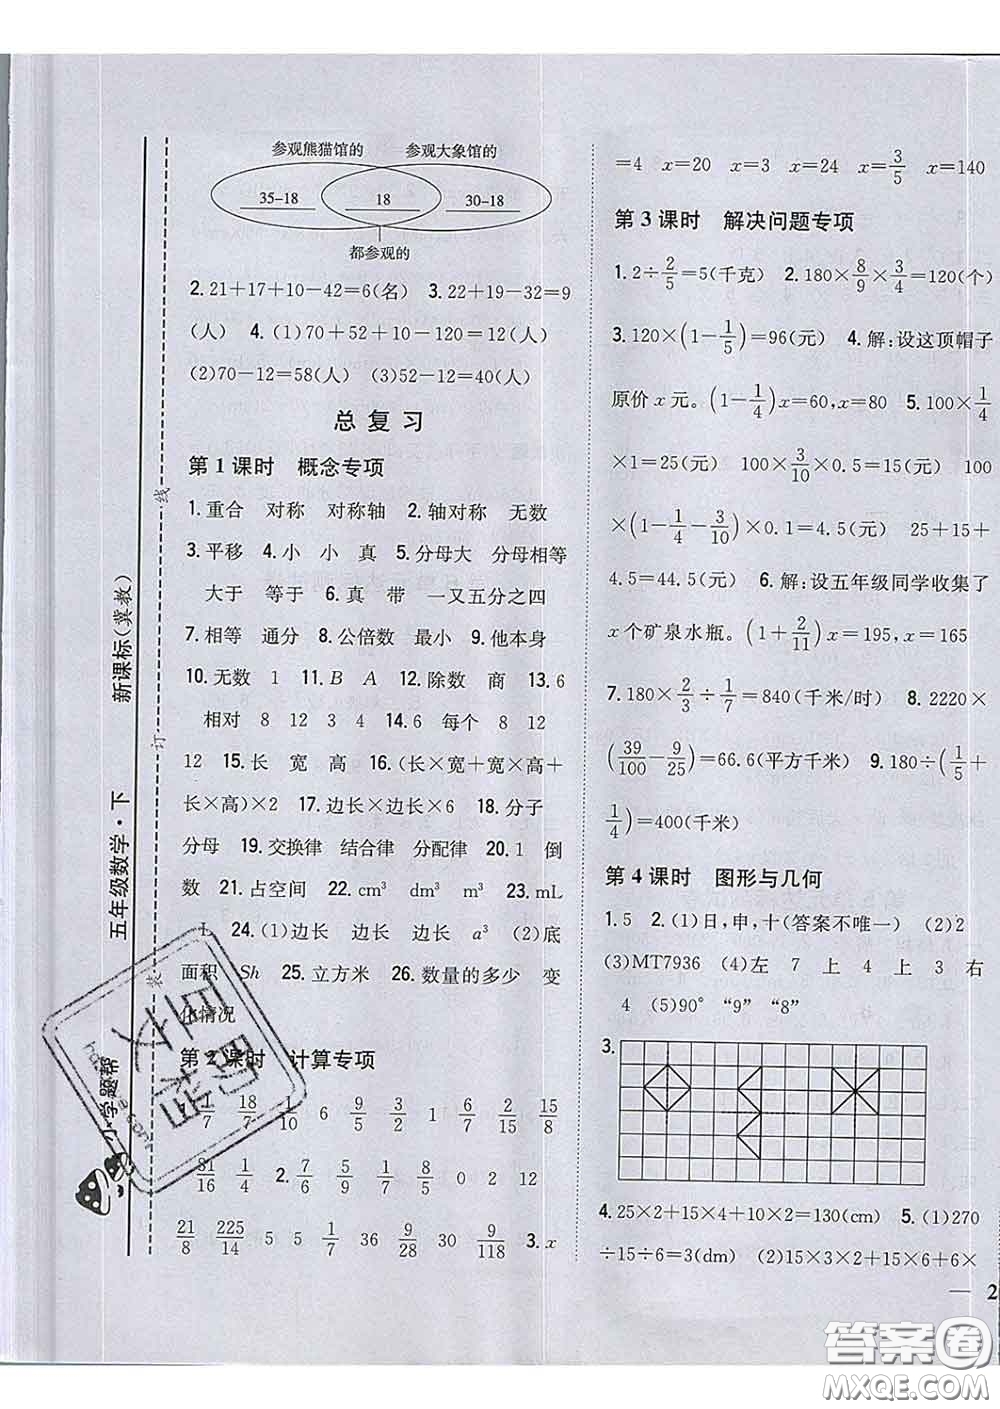 参观熊猫馆的 参观大象馆的
35-18 18 30-18
都参观的
2. 21+17+10-42=6(名) 3. 22+19-32=9
(人) 4. (1)70+52+10-120=12(人)
(2)70-12=58(人) (3)52-12=40(人)
总复习
第1课时 概念专项
1. 重合 对称 对称轴 2. 轴对称 无数
3. 平移 4. 小 小 真 5. 分母大 分母相等
大于 等于 6. 真 带 一又五分之四
7. 相等 通分 8. 公倍数 最小 9. 他本身
10. 无数 1 11. B A 12. 除数 商 13. 6
相对 8 12 3 4 14. 6 每个 8 12
12 15. 长 宽 高 16. (长×宽+宽×高+
长×高)×2 17. 边长×边长×6 18. 分子
分母 19. 交换律 结合律 分配律 20. 1 倒
数 21. 占空间 22. cm³ dm³ m³ 23. mL
L 24. (1)边长 边长 边长 a³ (2)底
面积 Sh 25. 立方米 26. 数量的多少 变
化情况
第2课时 计算专项
18/7 1/10 6 9/5 8/7 1 6/7 2/15 15/8
31/16 1/4 2. 7/6 5/9 1/6 8/5 0 2 12
21/8 225/14 5 5 1/7 36 9/28 30 9/118 3. x
=4 x=20 x=3 x=24 x=3/5 x=140
第3课时 解决问题专项
1. 2÷2/5=5(千克) 2. 180×8/9×3/4=120(个)
3. 120×(1-1/5)=96(元) 4. 解:设这顶帽子
原价x元。(1-1/4)x=60,x=80 5. 100×1/4
×1=25(元) 100×3/10×0.5=15(元) 100
×(1-1/4-3/10)×0.1=4.5(元) 25+15+
4.5=44.5(元) 6. 解:设五年级同学收集了
x个矿泉水瓶。(1+2/11)x=195,x=165
7. 180×2/3÷1/7=840(千米/时) 8. 2220×
(39/100-9/25)=66.6(平方千米) 9. 180÷(1/5+
1/4)=400(千米)
第4课时 图形与几何
1. 5 2. (1)日,申,十(答案不唯一) (2)2
(3)MT7936 (4)左 7 上 4 上 3 右
4 (5)90° “9” “8”
3.
4. 25×2+15×4+10×2=130(cm) 5. (1)270
÷15÷6=3(dm) (2)15×3×2+15×6+6×
— 2
新课标(冀教)
五年级数学·下
小学题帮
线
订
装
答案圈
MXQE.COM